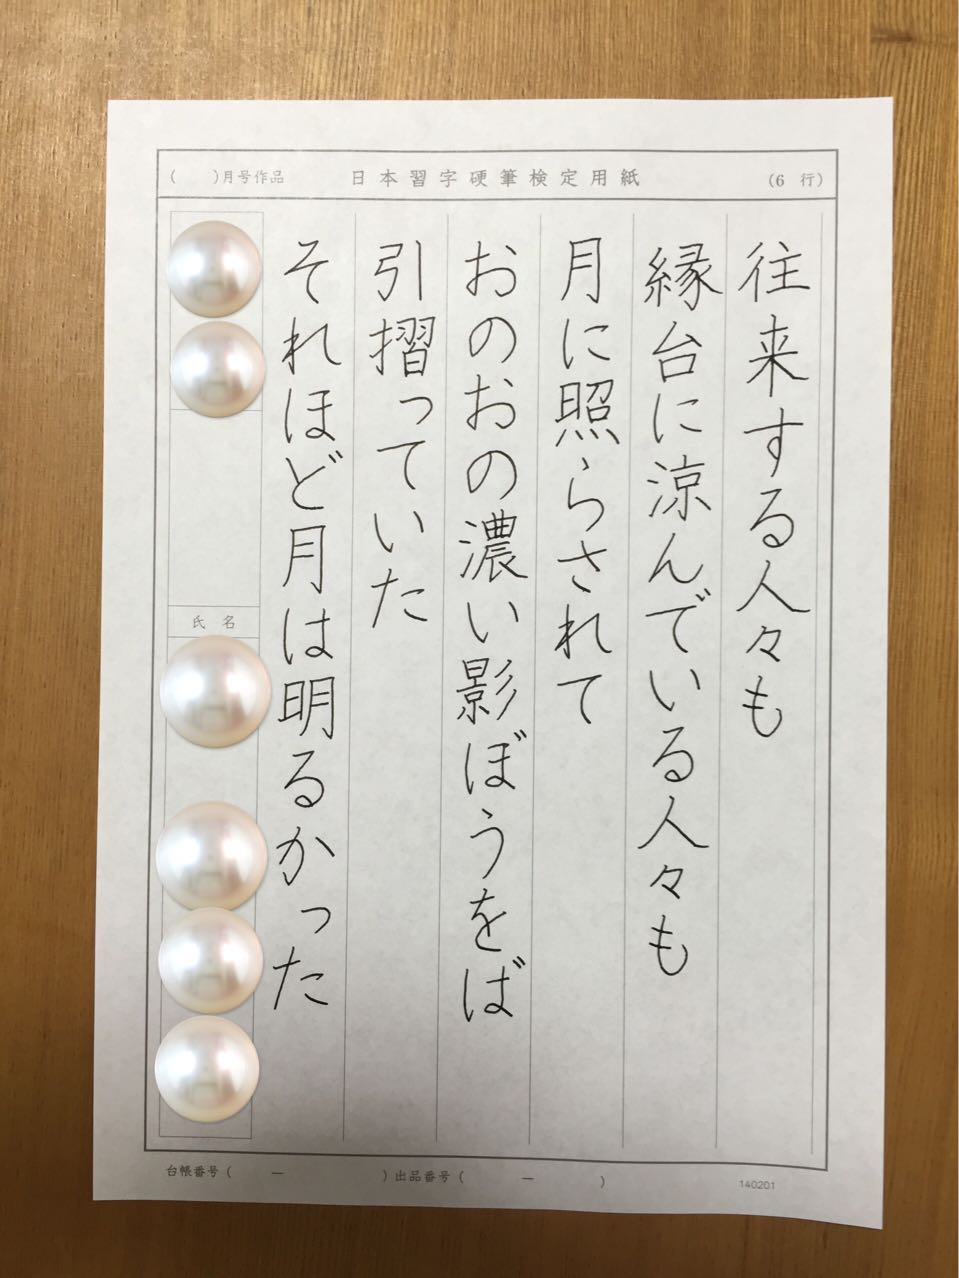 ( )月号作品 日本習字硬筆検定用紙 (6 行)
往来する人々も
縁台に涼んでいる人々も
月に照らされて
おのおの濃い影ぼうをば
引摺っていた
それほど月は明るかった
氏 名
台帳番号( ー )出品番号( ー )
140201